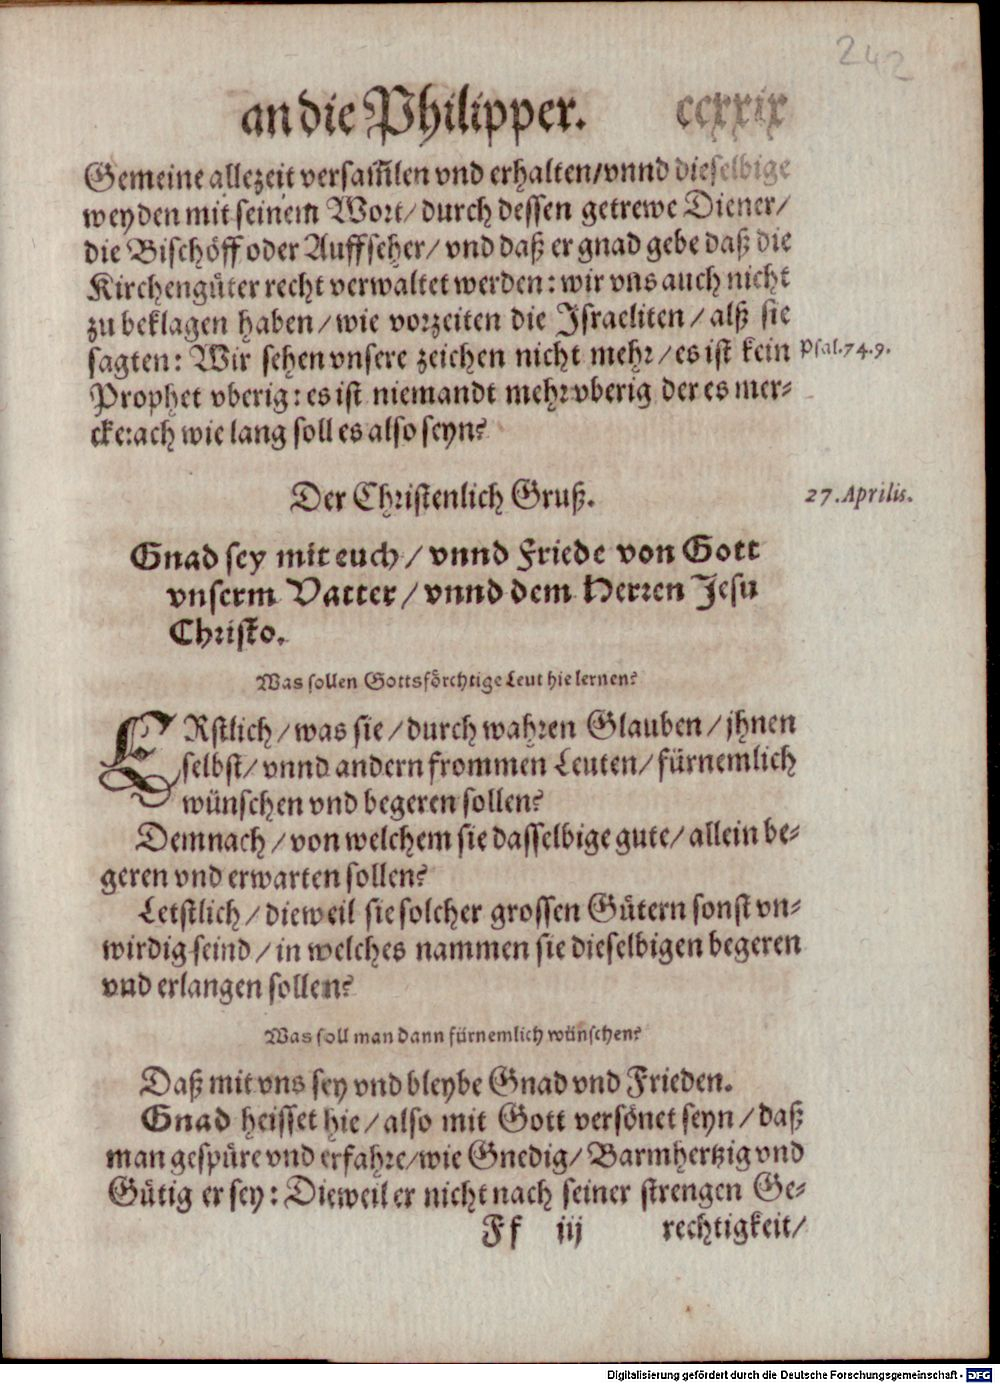 242
an die Philipper. ccxxix
Gemeine allezeit versam̃len vnd erhalten/vnnd dieselbige
weyden mit seinem Wort/ durch dessen getrewe Diener/
die Bischöff oder Auffseher/ vnd daß er gnad gebe daß die
Kirchengüter recht verwaltet werden: wir vns auch nicht
zu beklagen haben/ wie vorzeiten die Israeliten/ alß sie
sagten: Wir sehen vnsere zeichen nicht mehr/ es ist kein
Psal.74.9.
Prophet vberig: es ist niemandt mehr vberig der es mer-
cke: ach wie lang soll es also seyn?
Der Christenlich Gruß.
27.Aprilis.
Gnad sey mit euch/ vnnd Friede von Gott
vnserm Vatter/ vnnd dem Herren Jesu
Christo.
Was sollen Gottsförchtige Leut hie lernen?
ERstlich/ was sie/ durch wahren Glauben/ jhnen
selbst/ vnnd andern frommen Leuten/ fürnemlich
wünschen vnd begeren sollen?
Demnach/ von welchem sie dasselbige gute/ allein be-
geren vnd erwarten sollen?
Letstlich/ dieweil sie solcher grossen Gütern sonst vn-
wirdig seind/ in welches nammen sie dieselbigen begeren
vnd erlangen sollen?
Was soll man dann fürnemlich wünschen?
Daß mit vns sey vnd bleybe Gnad vnd Frieden.
Gnad heisset hie/ also mit Gott versönet seyn/ daß
man gespüre vnd erfahre/ wie Gnedig/ Barmhertzig vnd
Gütig er sey: Dieweil er nicht nach seiner strengen Ge-
Ff iij rechtigkeit/
Digitalisierung gefördert durch die Deutsche Forschungsgemeinschaft - DFG